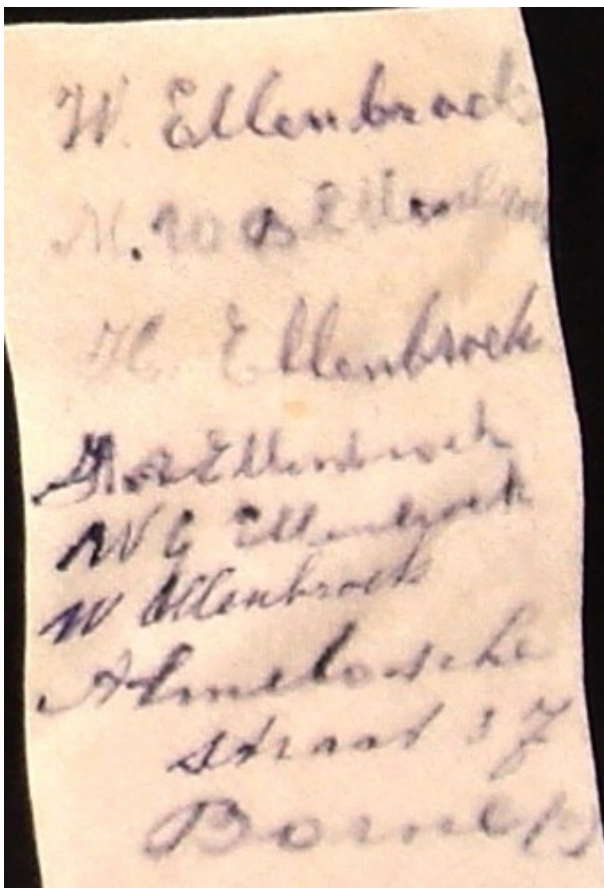 W. Ellenbroek
M. W B Ellenbr
H. Ellenbroek
Ellenbroek
W G Ellenbroek
W Ellenbroek
Almeloosche
straat 37
Borne